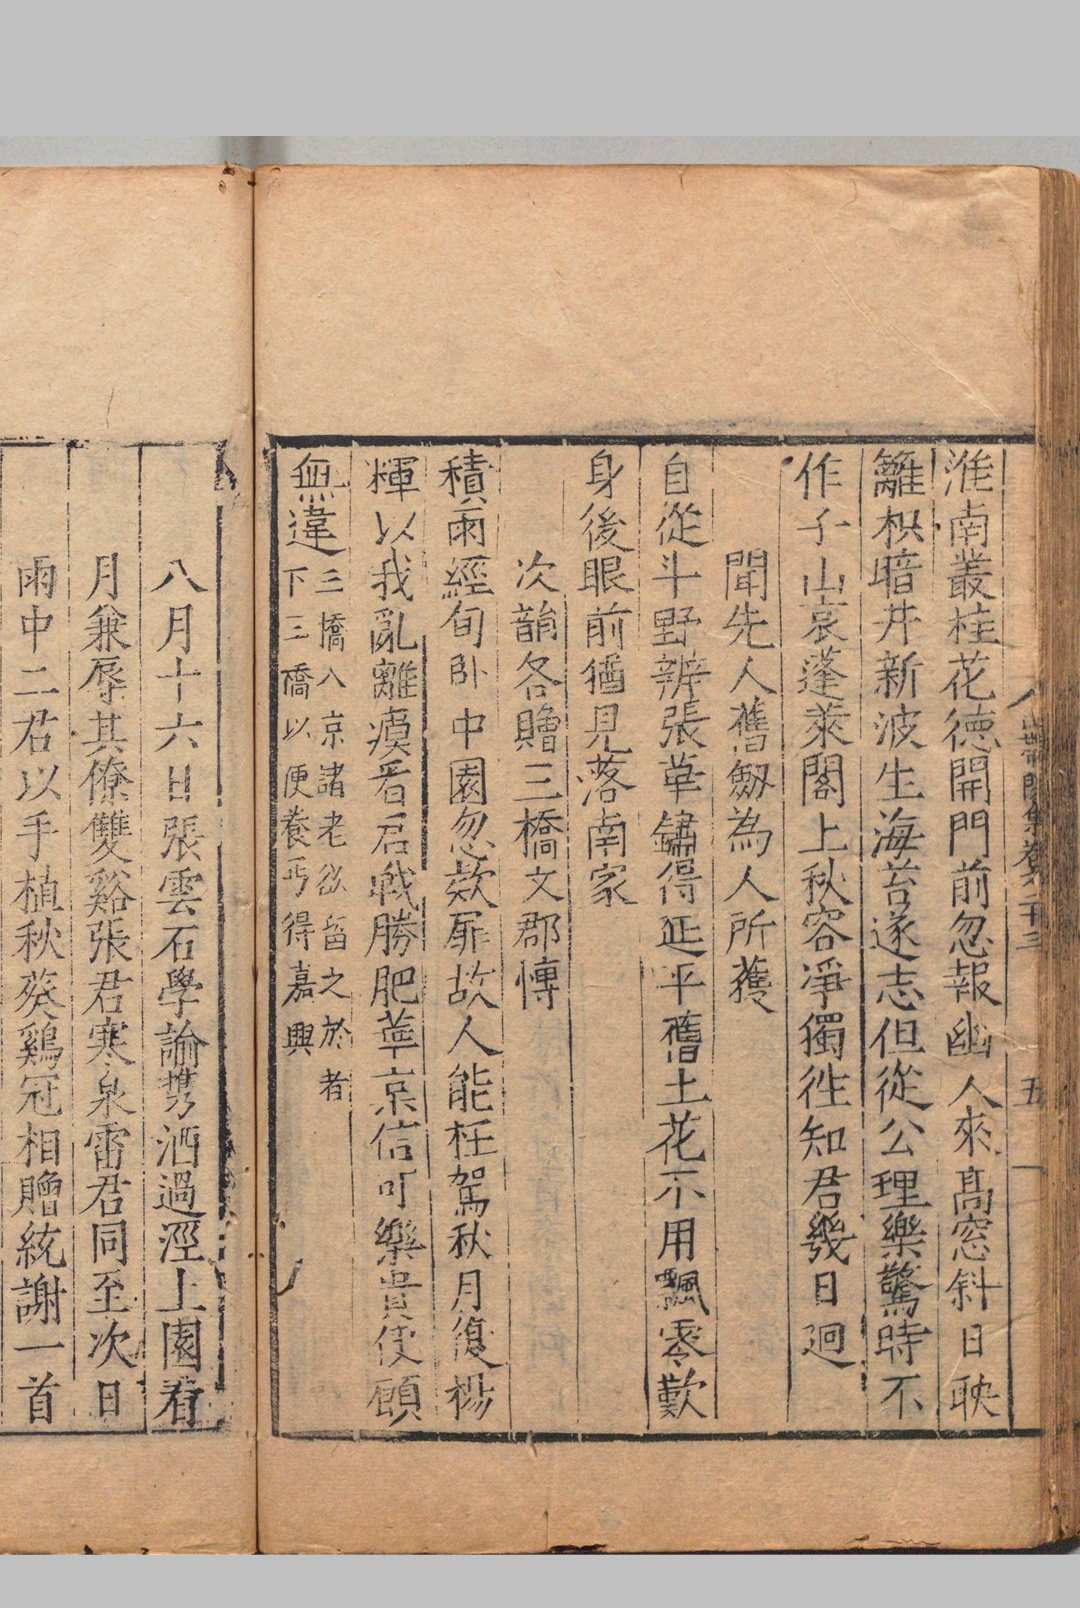 山帶閣集卷之二十三 五
淮南叢桂花徳開門前忽報幽人來髙窓斜日映
籬枳暗井新波生海苔遂志但從公理樂驚時不
作子山哀蓬萊閣上秋容凈獨徃知君幾日迴
聞先人舊劔為人所獲
自從斗野辨張華鏽得延平舊土花不用飄零歎
身後眼前猶見落南家
次韻各贈三橋文郡愽
積雨經旬卧中園忽欵扉故人能枉駕秋月復楊
輝以我亂離瘼看君戰勝肥華京信可樂貴使願
無違
三橋入京諸老欲留之於者
下三橋以便養丐得嘉興
八月十六日張雲石學諭携酒過涇上園看
月兼辱其僚雙谿張君寒泉雷君同至次日
雨中二君以手植秋葵鷄冠相贈統謝一首